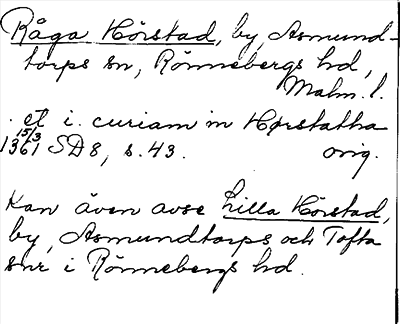 Råga Hörstad, by, Asmund-
torps sn, Rönnebergs hd,
Malm. l.
. et i. curiam in Hørstatha
15/3
1361 SD 8, s. 43. orig.
Kan även avse Lilla Hörstad,
by, Asmundtorps och Tofta
snr i Rönnebergs hd.